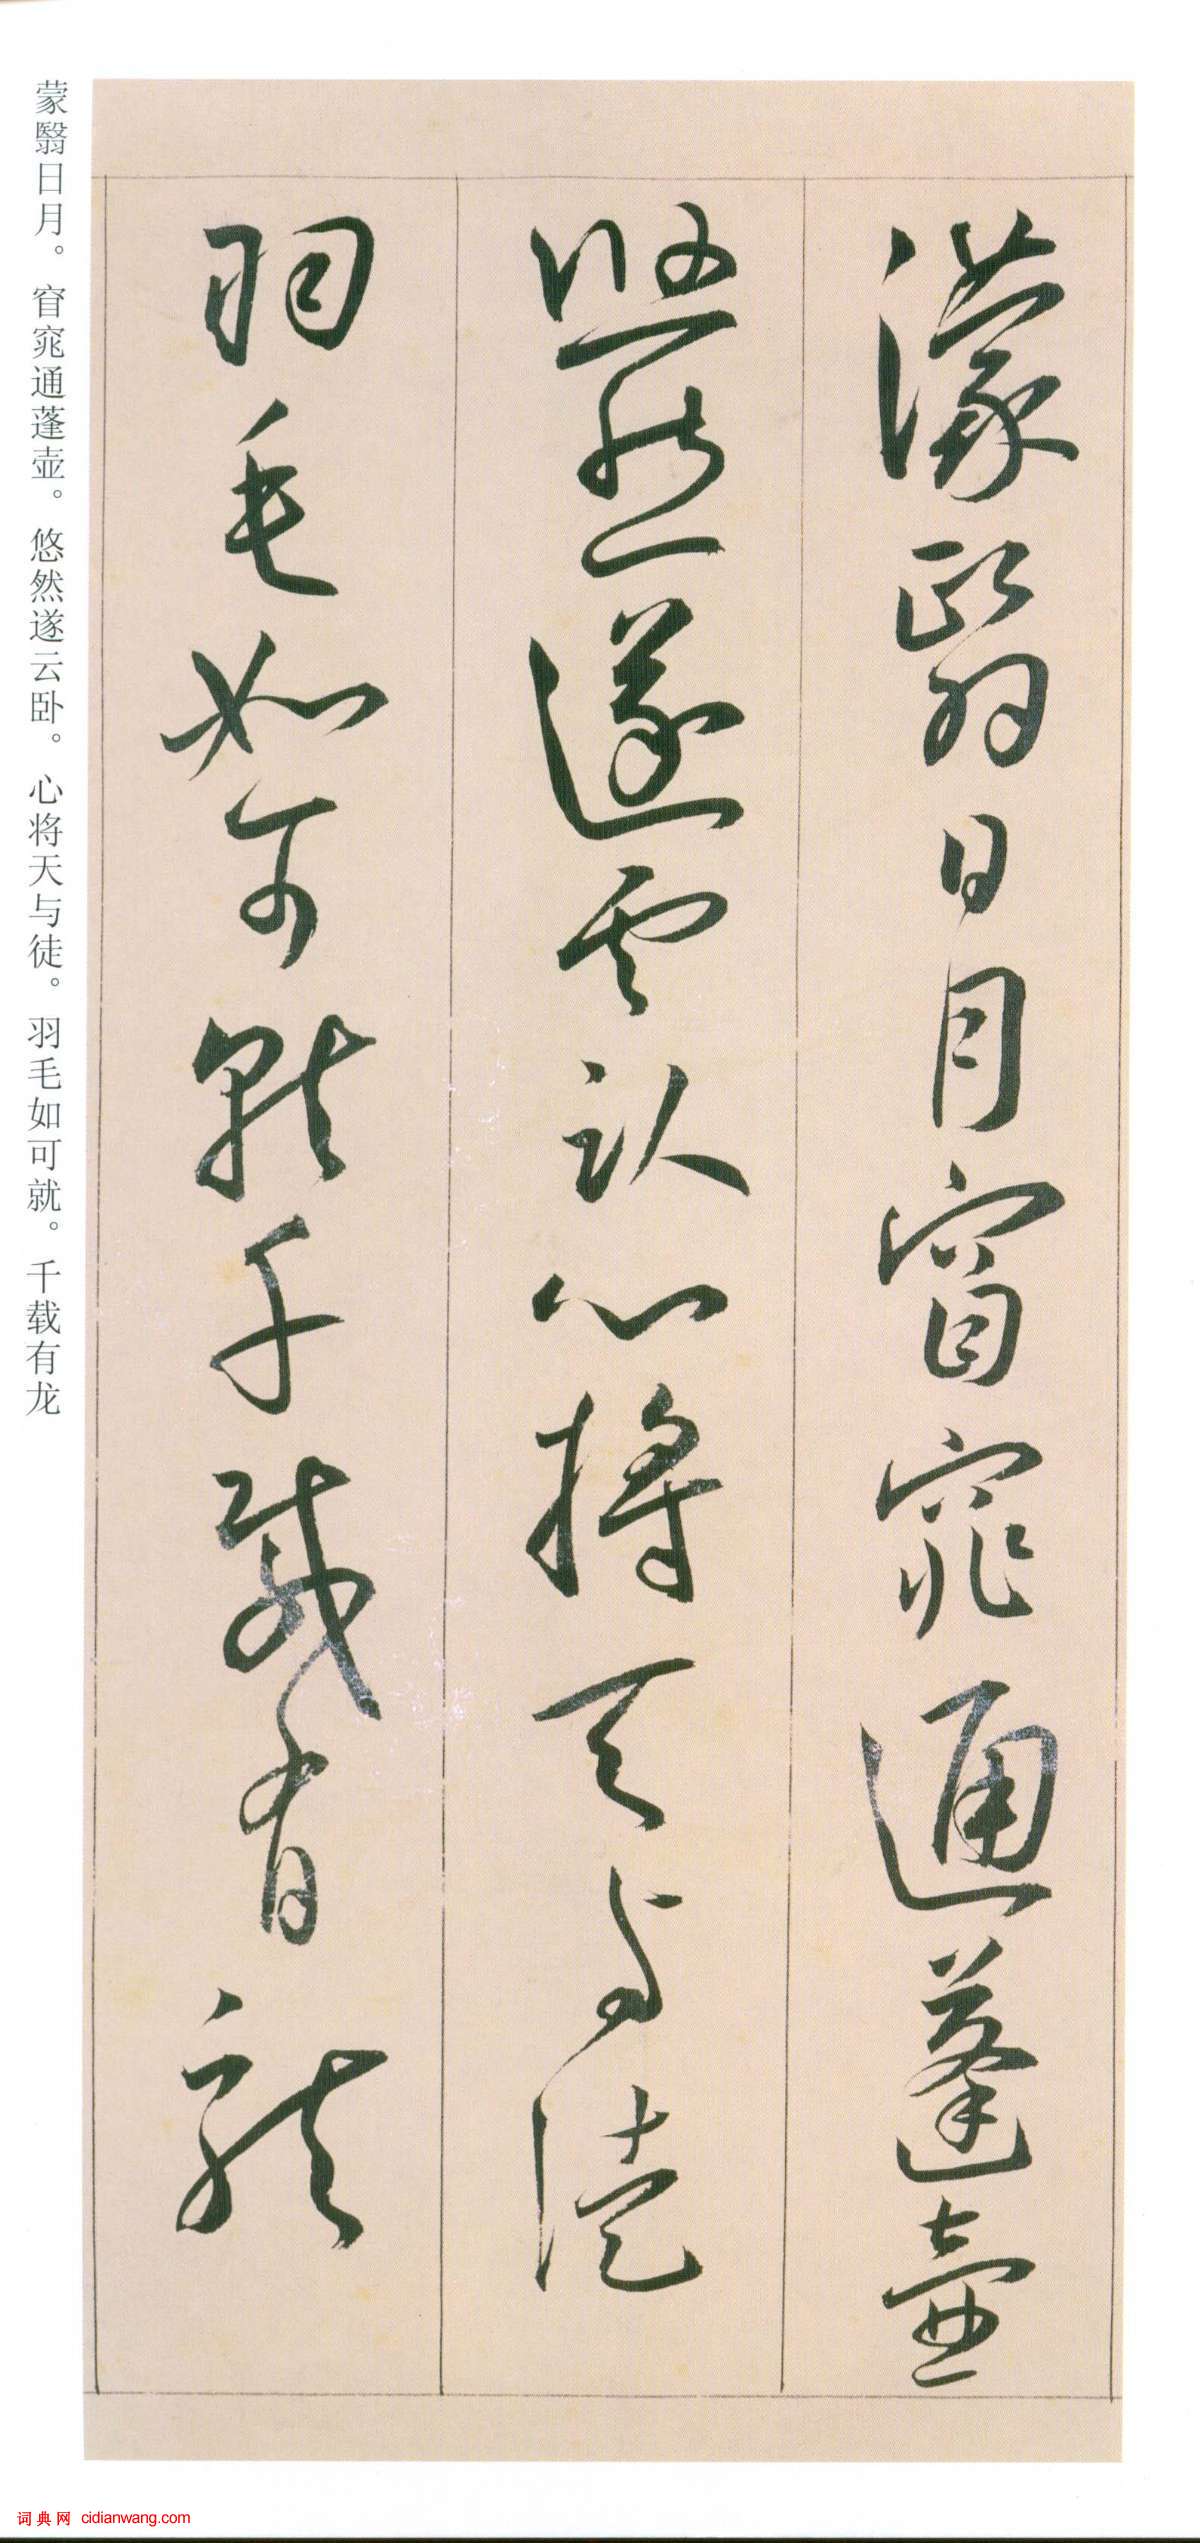 濛翳日月窅窕通蓬壷
悠然遂雲臥心將天与徒
羽毛如可就千載有龍
蒙翳日月。窅窕通蓬壶。悠然遂云卧。心将天与徒。羽毛如可就。千载有龙
词典网 cidianwang.com